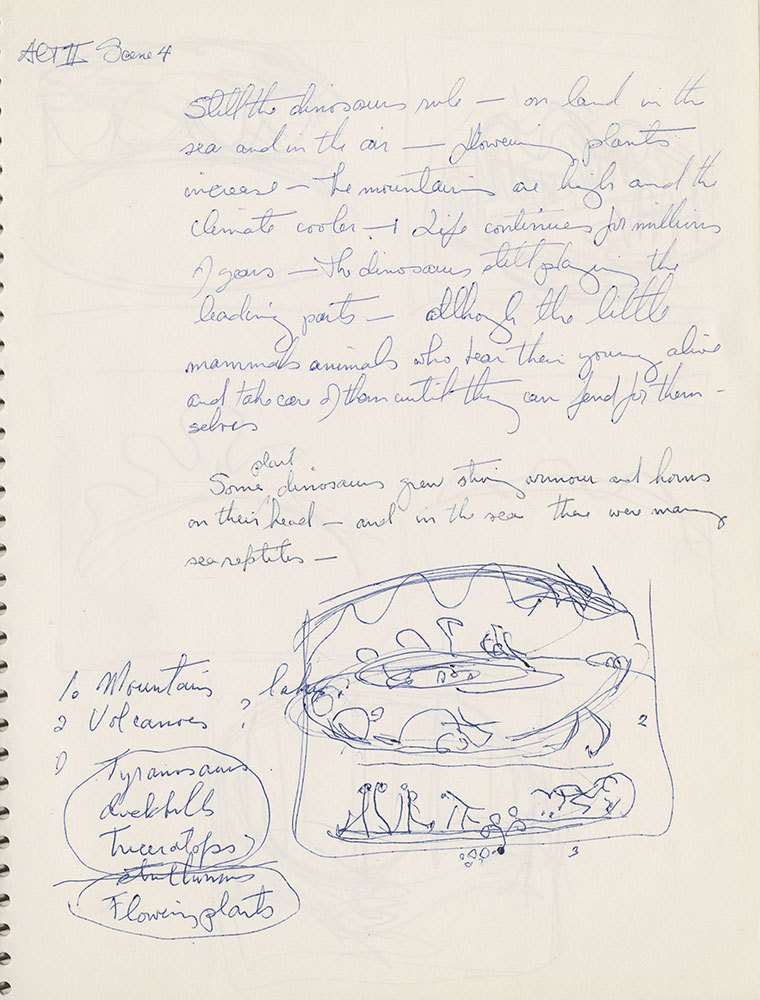 ACT II Scene 4
Still the dinosaurs rule — on land in the
sea and in the air — flowering plants
increase — The mountains are high and the
climate cooler — Life continues for millions
of years — The dinosaurs still playing the
leading parts — although the little
mammals animals who bear their young alive
and take care of them until they can fend for them-
selves
plant
Some dinosaurs grew strong armour and horns
on their head — and in the sea there were many
sea reptiles —
1. Mountains lakes
2 Volcanoes ?
Tyranosaurus
duckbills
Triceratops
Flowering plants
2
3